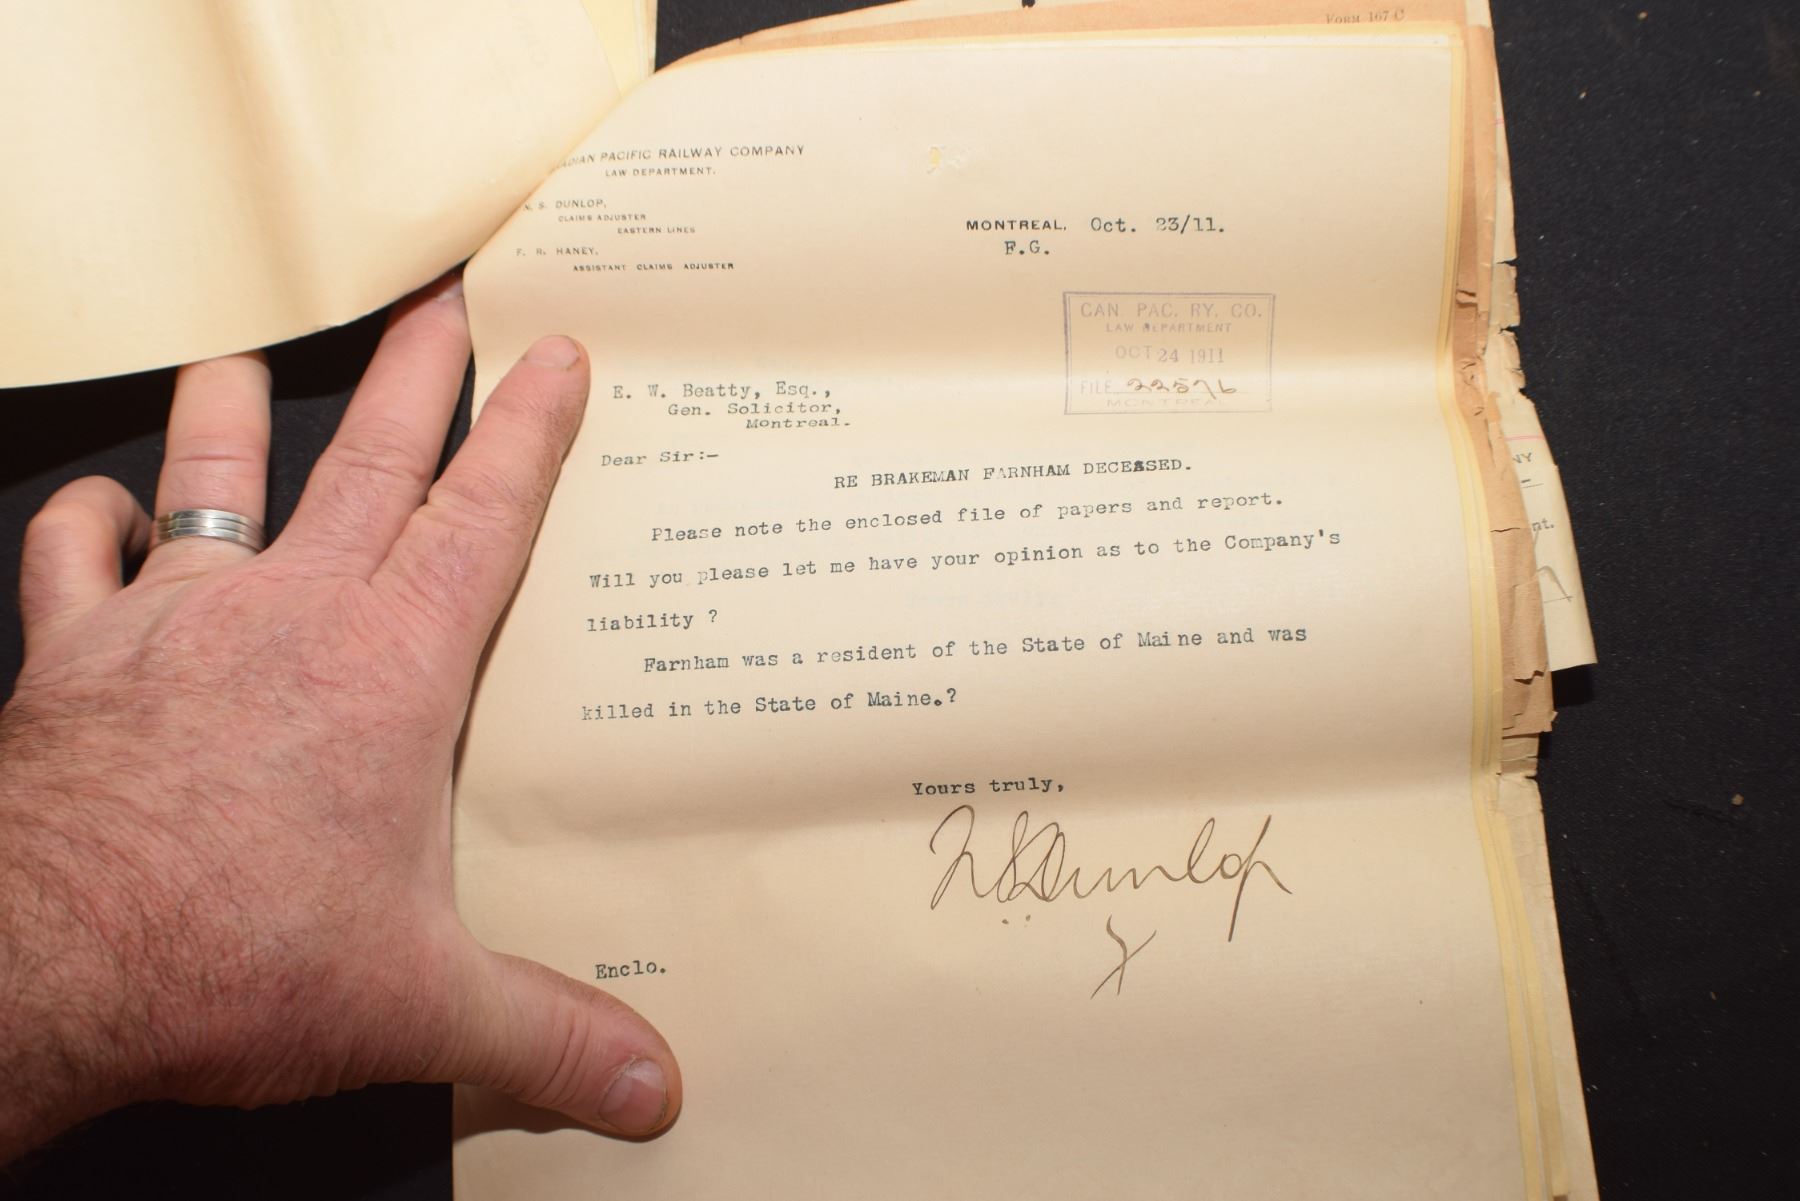 FORM 167 C
ADIAN PACIFIC RAILWAY COMPANY
LAW DEPARTMENT.
N. S. DUNLOP,
CLAIMS ADJUSTER
EASTERN LINES
F. R. HANEY,
ASSISTANT CLAIMS ADJUSTER
MONTREAL, Oct. 23/11.
F.G.
CAN. PAC. RY. CO.
LAW DEPARTMENT
OCT 24 1911
FILE 22576
MONTREAL
E. W. Beatty, Esq.,
Gen. Solicitor,
Montreal.
Dear Sir:-
RE BRAKEMAN FARNHAM DECEASED.
Please note the enclosed file of papers and report.
Will you please let me have your opinion as to the Company's
liability ?
Farnham was a resident of the State of Maine and was
killed in the State of Maine.?
Yours truly,
N S Dunlop
Enclo.
NY
nt.